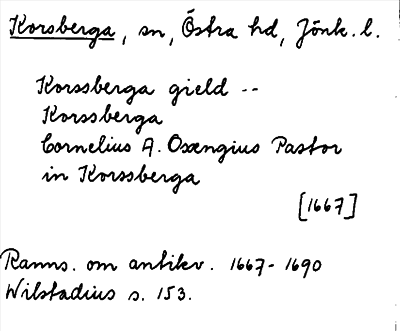 Korsberga, sn, Östra hd, Jönk. l.
Korssberga gield --
Korssberga
Cornelius A. Oxengius Pastor
in Korssberga
[1667]
Ranns. om antikv. 1667-1690
Wilstadius s. 153.